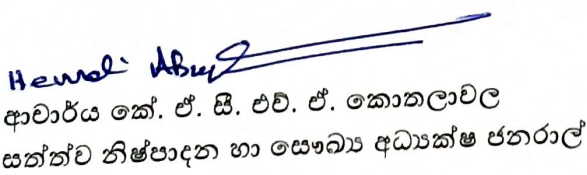 Hemali
ආචාර්ය කේ. ඒ. සී. එච්. ඒ. කොතලාවල
සත්ත්ව නිෂ්පාදන හා සෞඛ්‍ය අධ්‍යක්ෂ ජනරාල්